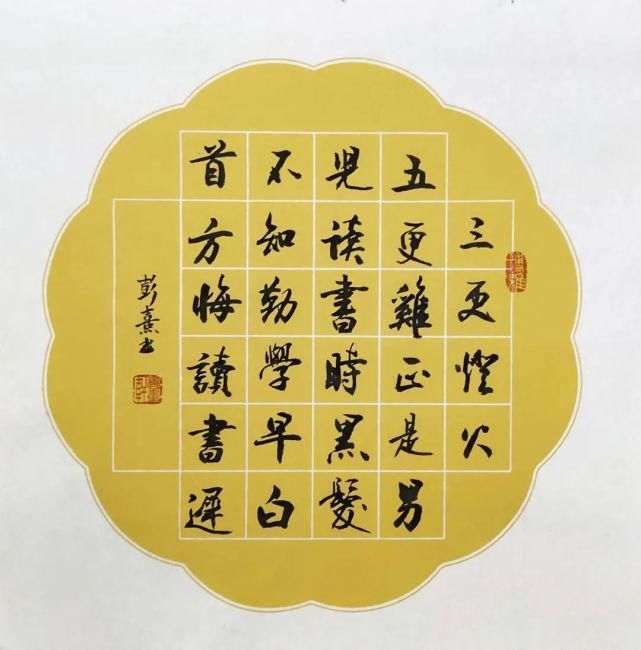 三更燈火
五更雞正是男
児读書時黑髮
不知勤學早白
首方悔讀書遲
彭熹书